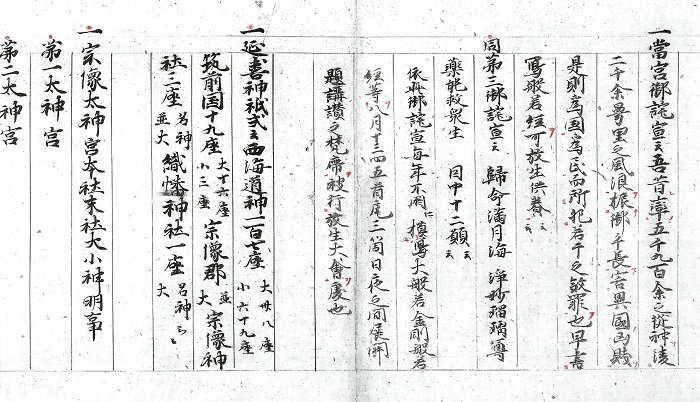 一當宮御詫宣云吾昔率五千九百余之従神凌
二千余万里之風浪振御手長宮異國凶賊
是則為国為民而所犯若干之敘罪也早書
寫般若經可放生供養云々
同第三御詫宣云 歸命満月海 浄妙瑠璃尊
藥能救衆生 因中十二願云々
依此御詫宣每年不闕仁模寫大般若金剛般若
經等八月十三四五首尾三箇日夜之間展開
題講讃之梵席被行放生大會處也
一延喜神祇式云西海道神一百七座 大卅八座 小六十九座
筑前国十九座 大十六座 小三座 宗像郡 並大 宗像神
社三座 並名神大 織幡神社一座 名神大
一宗像太神宮本社末社大小神明事
第一太神宮
第二太神宮